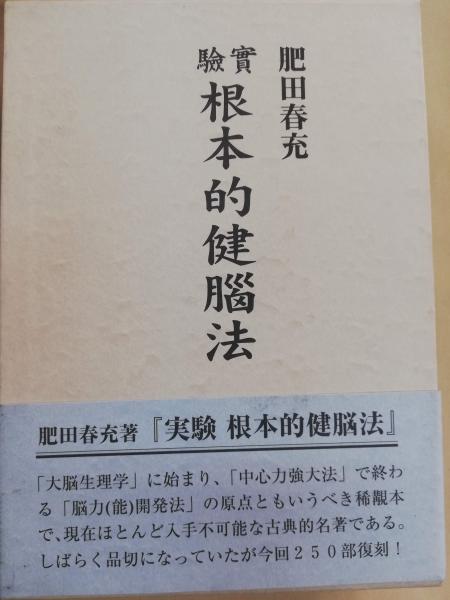 肥田春充
實驗 根本的健腦法
肥田春充著『実験 根本的健脳法』
「大脳生理学」に始まり、「中心力強大法」で終わ
る「脳力(能)開発法」の原点ともいうべき稀覯本
で、現在ほとんど入手不可能な古典的名著である。
しばらく品切になっていたが今回２５０部復刻！